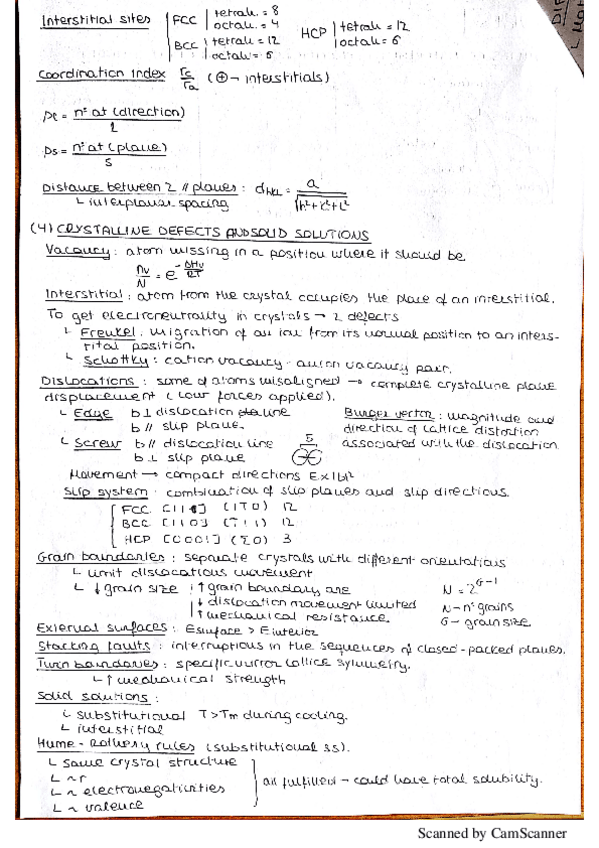 Interstitial sites FCC tetrah. = 8 HCP tetrah = 12
octah. = 4 octah = 6
BCC tetrah = 12
octah = 6
Coordination index rc/ra (⊕→ interstitials)
ρl = nº at (direction) / L
ρs = nº at (plane) / S
Distance between 2 // planes: dhkl = a / √h²+k²+l²
↳ interplanar spacing
(4) CRYSTALLINE DEFECTS AND SOLID SOLUTIONS
Vacancy: atom missing in a position where it should be
nv/N = e^-ΔHv/RT
Interstitial: atom from the crystal occupies the place of an interstitial.
To get electroneutrality in crystals → 2 defects
↳ Frenkel: migration of an ion from its normal position to an inters-
titial position.
↳ Schottky: cation vacancy - anion vacancy pair.
Dislocations: some of atoms misaligned → complete crystalline plane
displacement (low forces applied).
↳ Edge b ⊥ dislocation line
b // slip plane.
Burger vector: magnitude and
direction of lattice distortion
associated with the dislocation
↳ Screw b // dislocation line
b ⊥ slip plane
Movement → compact directions E∝|b|²
Slip system: combination of slip planes and slip directions.
FCC 12
BCC 12
HCP 3
Grain boundaries: separate crystals with different orientations
↳ limit dislocations movement
↳ ↓ grain size ↑ grain boundary are
↓ dislocation movement limited
↑ mechanical resistance.
N = 2^G-1
N - nº grains
G - grain size
External surfaces: Esurface > Einterior
Stacking faults: interruptions in the sequences of closed-packed planes.
Twin boundaries: specific mirror lattice symmetry.
↳ ↑ mechanical strength
Solid solutions:
↳ substitutional T>Tm during cooling.
↳ interstitial
Hume-Rothery rules (substitutional ss).
↳ same crystal structure
↳ ~ r
↳ ~ electronegativities
↳ ~ valence
all fulfilled → could have total solubility.
Scanned by CamScanner